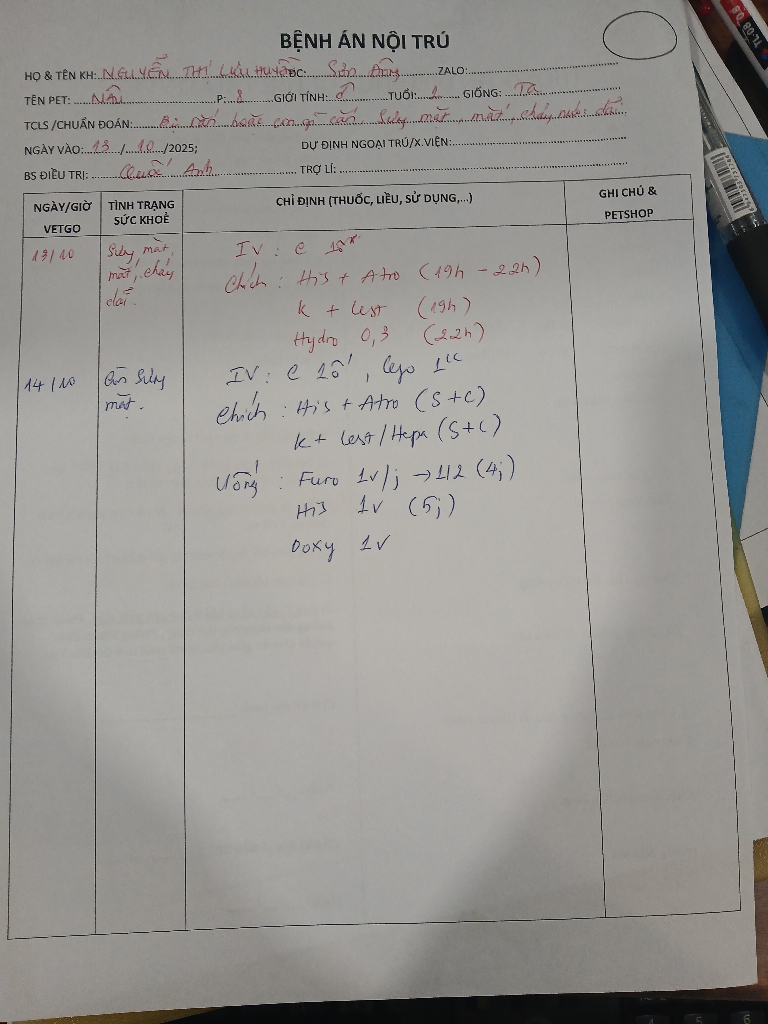 BỆNH ÁN NỘI TRÚ
HỌ & TÊN KH: NGUYỄN THỊ LƯU HUYỀN ĐC: Sơn Động ZALO:
TÊN PET: NÂU P: 8 GIỚI TÍNH: ♂ TUỔI: 1 GIỐNG: Ta
TCLS /CHUẨN ĐOÁN: Bị rắn hoặc con gì cắn. Sưng mặt, mắt, chảy nước dãi
NGÀY VÀO: 13 / 10 /2025; DỰ ĐỊNH NGOẠI TRÚ/X.VIỆN:
BS ĐIỀU TRỊ: Quốc Anh TRỢ LÍ:
NGÀY/GIỜ VETGO
TÌNH TRẠNG SỨC KHOẺ
CHỈ ĐỊNH (THUỐC, LIỀU, SỬ DỤNG,...)
GHI CHÚ & PETSHOP
13/10
Sưng mặt,
mắt, chảy
dãi.
IV: C
Chích: His + Atro (19h - 22h)
K + Lest (19h)
Hydro 0,3 (22h)
14/10
Còn Sưng
mặt.
IV: C
Chích: His + Atro (S+C)
K + Lest/Hepa (S+C)
Uống: Furo 1v/j → 1/2 (4j)
His 1v (5j)
Doxy 1v